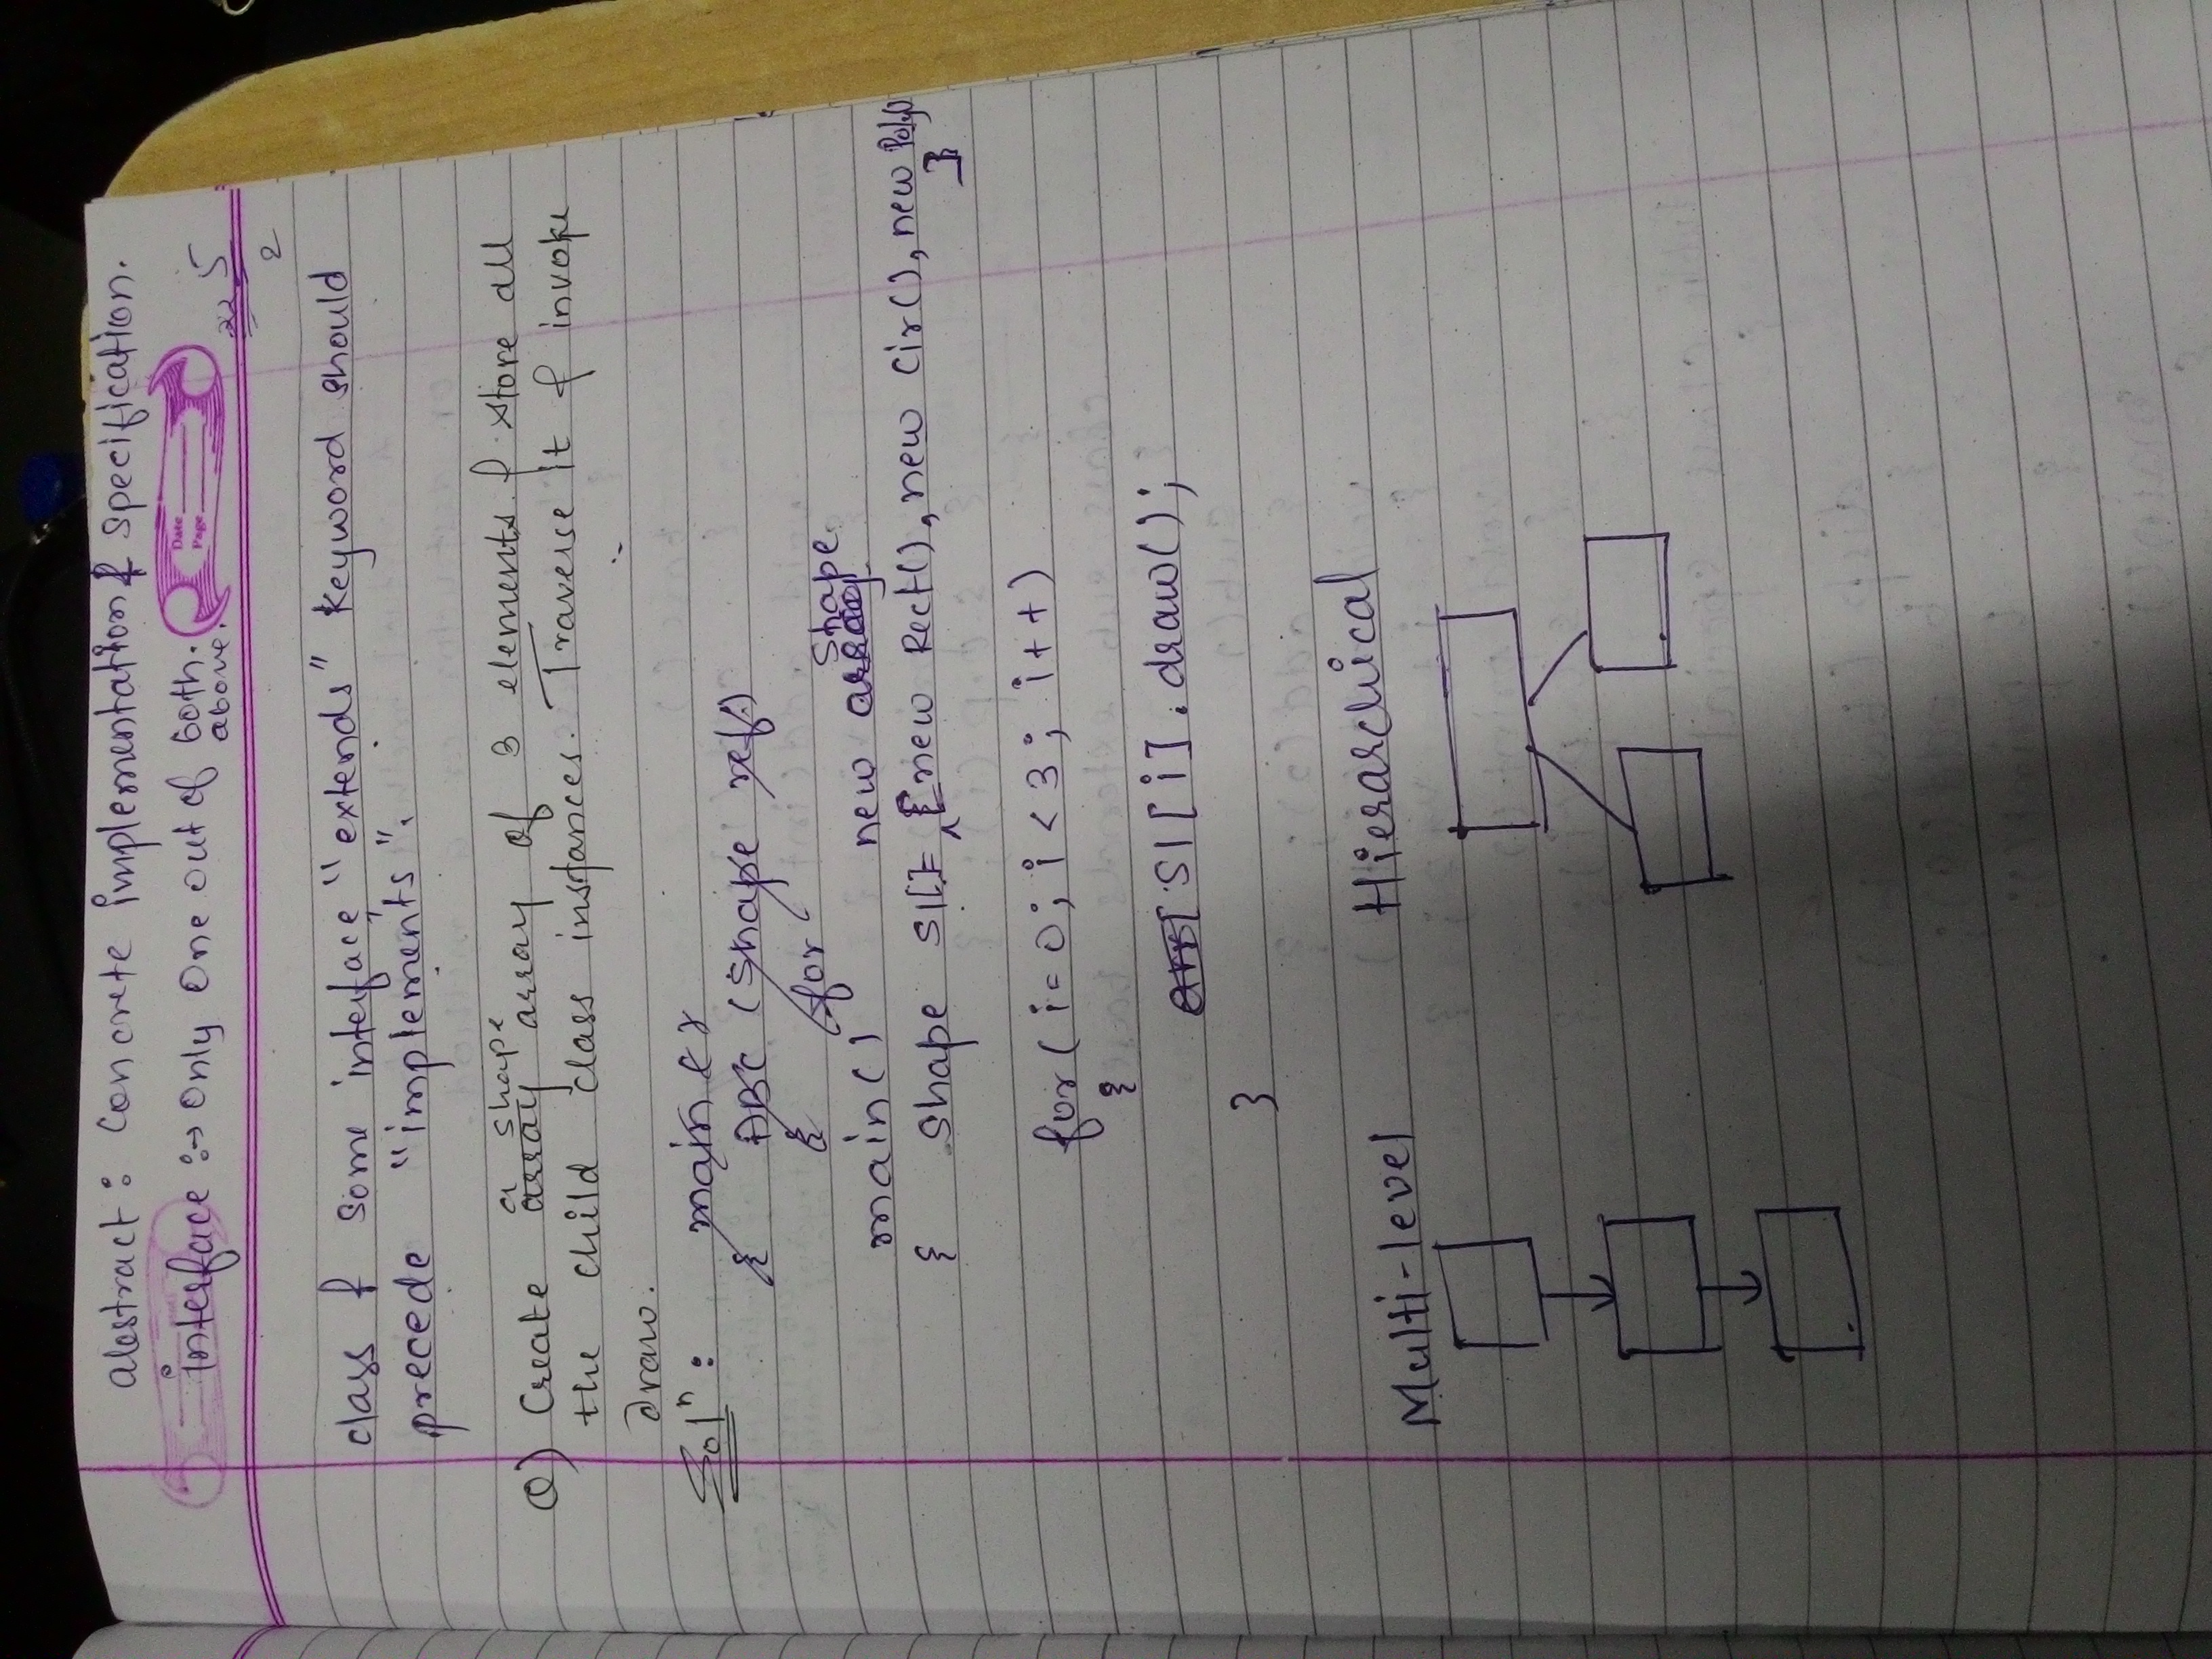 abstract : Concrete implementation & specification.
interface :→ Only One out of both.
above.
Date
Page
5
2
class & some interface, "extends" keyword should
precede "implements".
a shape
Q) Create array array of 3 elements & store all
the child class instances. Traverse it & invoke
draw.
Solⁿ :
main
{ ABC (Shape ref)
{ for
Shape
main() new array
{ Shape S1[]= {new Rect(), new Cir(), new Poly()
}
for( i=0; i<3; i++)
{
arr[ S1[i].draw();
}
Multi-level Hierarchical